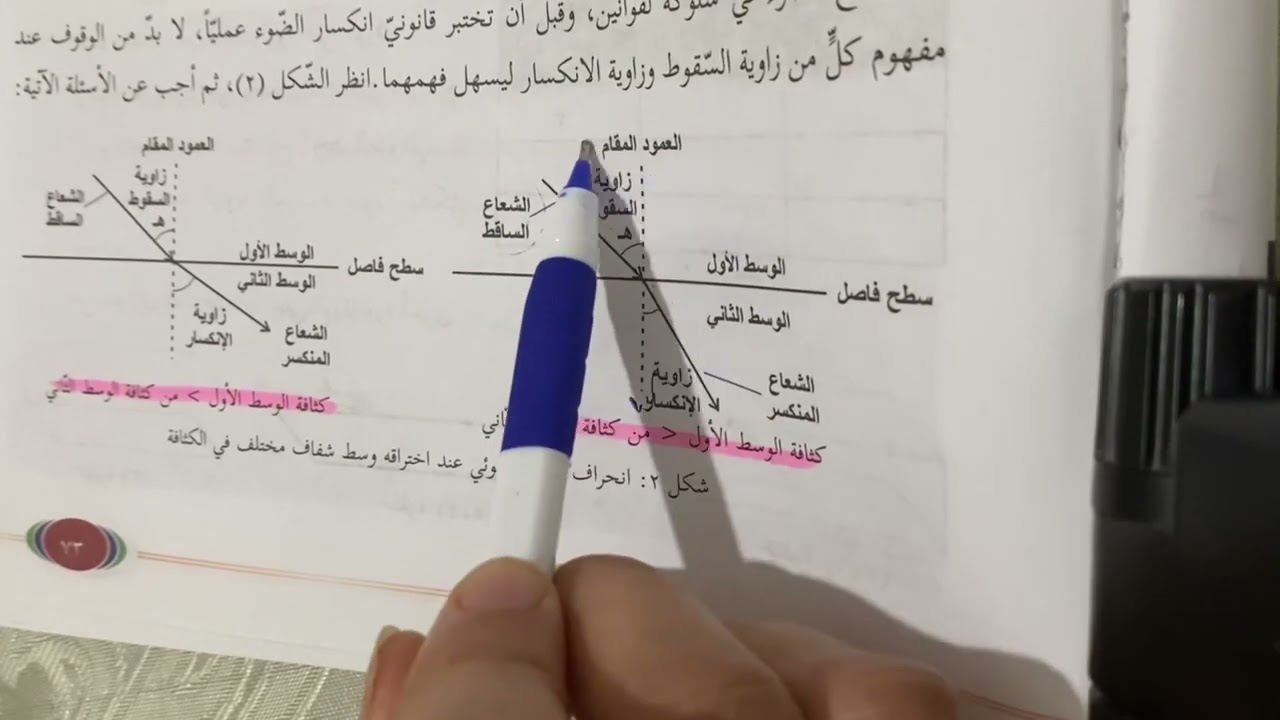 لقوانين، وقبل أن تختبر قانونيّ انكسار الضّوء عمليّاً، لا بدّ من الوقوف عند
مفهوم كلٍّ من زاوية السّقوط وزاوية الانكسار ليسهل فهمهما. انظر الشّكل (٢)، ثم أجب عن الأسئلة الآتية:
العمود المقام
زاوية
السقو
هـ
الشعاع
الساقط
الوسط الأول
سطح فاصل
الوسط الثاني
زاوية
الإنكسار
الشعاع
المنكسر
كثافة الوسط الأول < من كثافة
العمود المقام
زاوية
السقوط
هـ
الشعاع
الساقط
الوسط الأول
سطح فاصل
الوسط الثاني
زاوية
الإنكسار
الشعاع
المنكسر
كثافة الوسط الأول > من كثافة الوسط الثاني
شكل ٢: انحراف وئي عند اختراقه وسط شفاف مختلف في الكثافة
٧٣